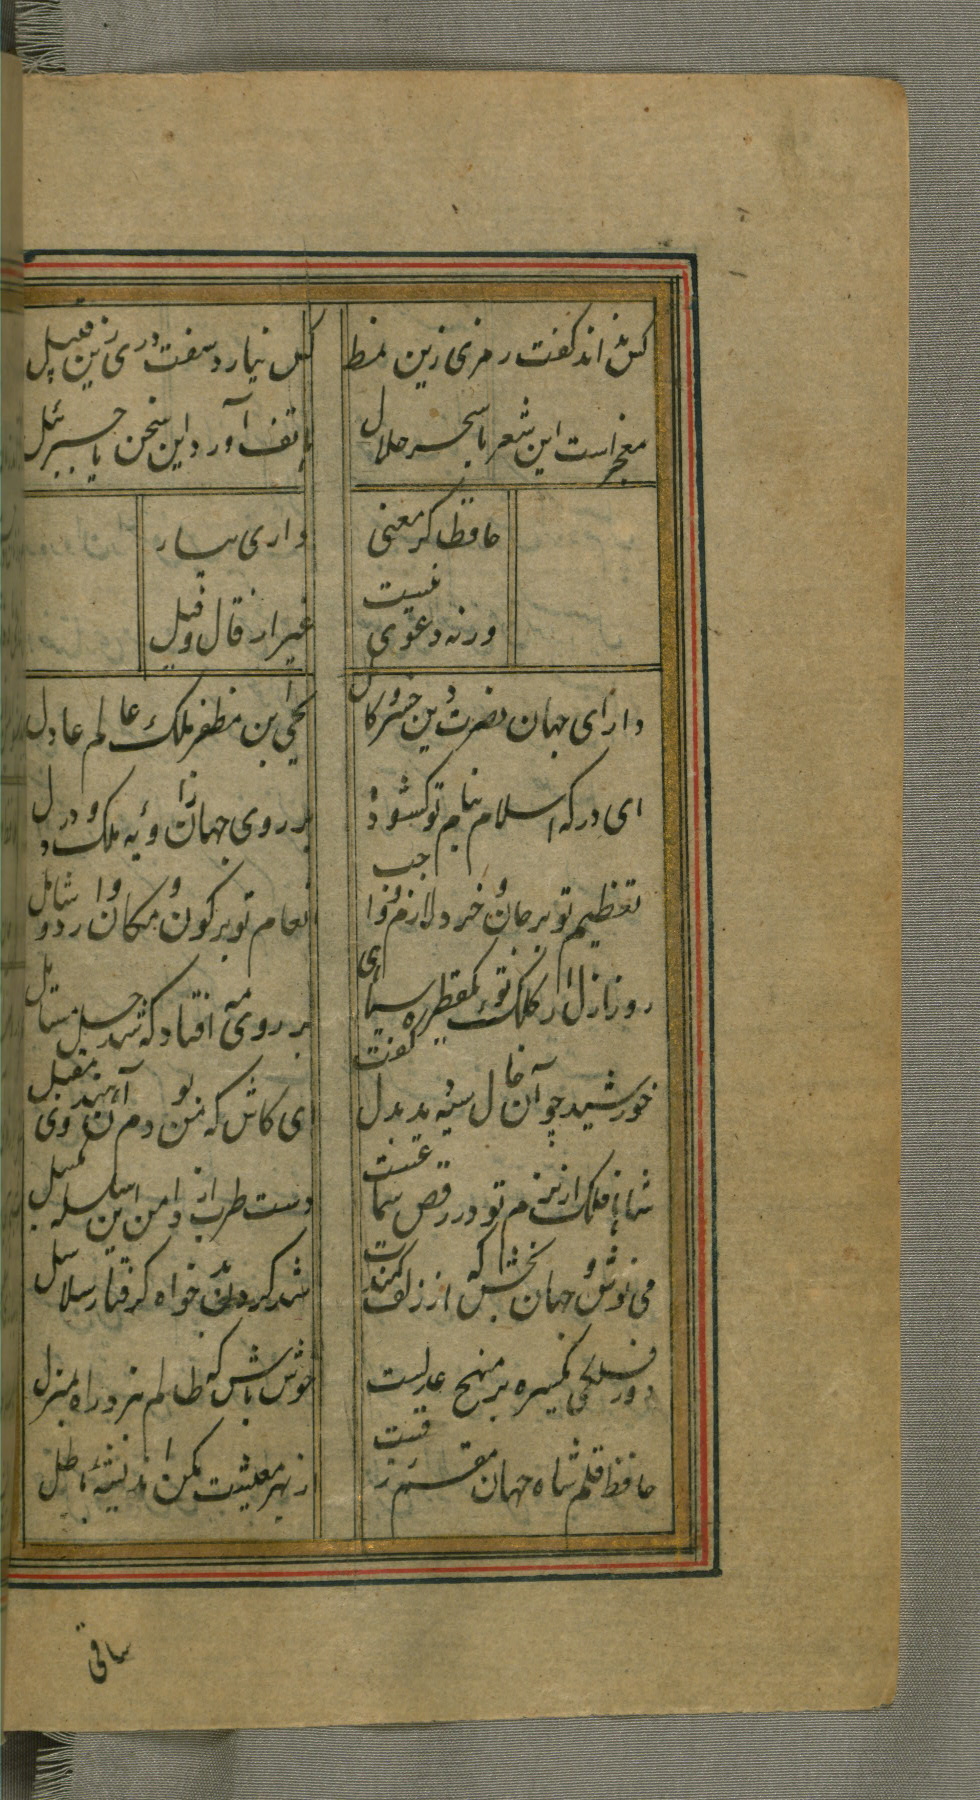 کس نداند گفت رمزی زین نمط
کس نیارد سفت دری زین قبیل
معجز است این شعر یا سحر حلال
هاتف آورد این سخن یا جبرئیل
حافظا گر معنی
داری بیار
ورنه دعوی نیست
غیر از قال و قیل
دارای جهان نصرت دین خسرو کامل
یحیی بن مظفر ملک عالم عادل
ای درگه اسلام پناه تو گشوده
بر روی جهان روزنهٔ ملک و در دل
تعظیم تو بر جان و خرد لازم و واجب
انعام تو بر کون و مکان وارد و شامل
روز ازل از کلک تو یک قطره سیاهی
بر روی مه افتاد که شد حل مسائل
خورشید چو آن خال سیه دید بدل گفت
ای کاش که من بودم آن هندوی مقبل
شاها فلک از بزم تو در رقص سماعست
دست طرب از دامن این سلسله مگسل
می نوش و جهان بخش که از زلف کمندت
شد گردن بدخواه گرفتار سلاسل
دور فلکی یکسره بر منهج عدلست
خوش باش که ظالم نبرد راه بمنزل
حافظ قلم شاه جهان مقسم رزقست
از بهر معیشت مکن اندیشهٔ باطل
ساقی